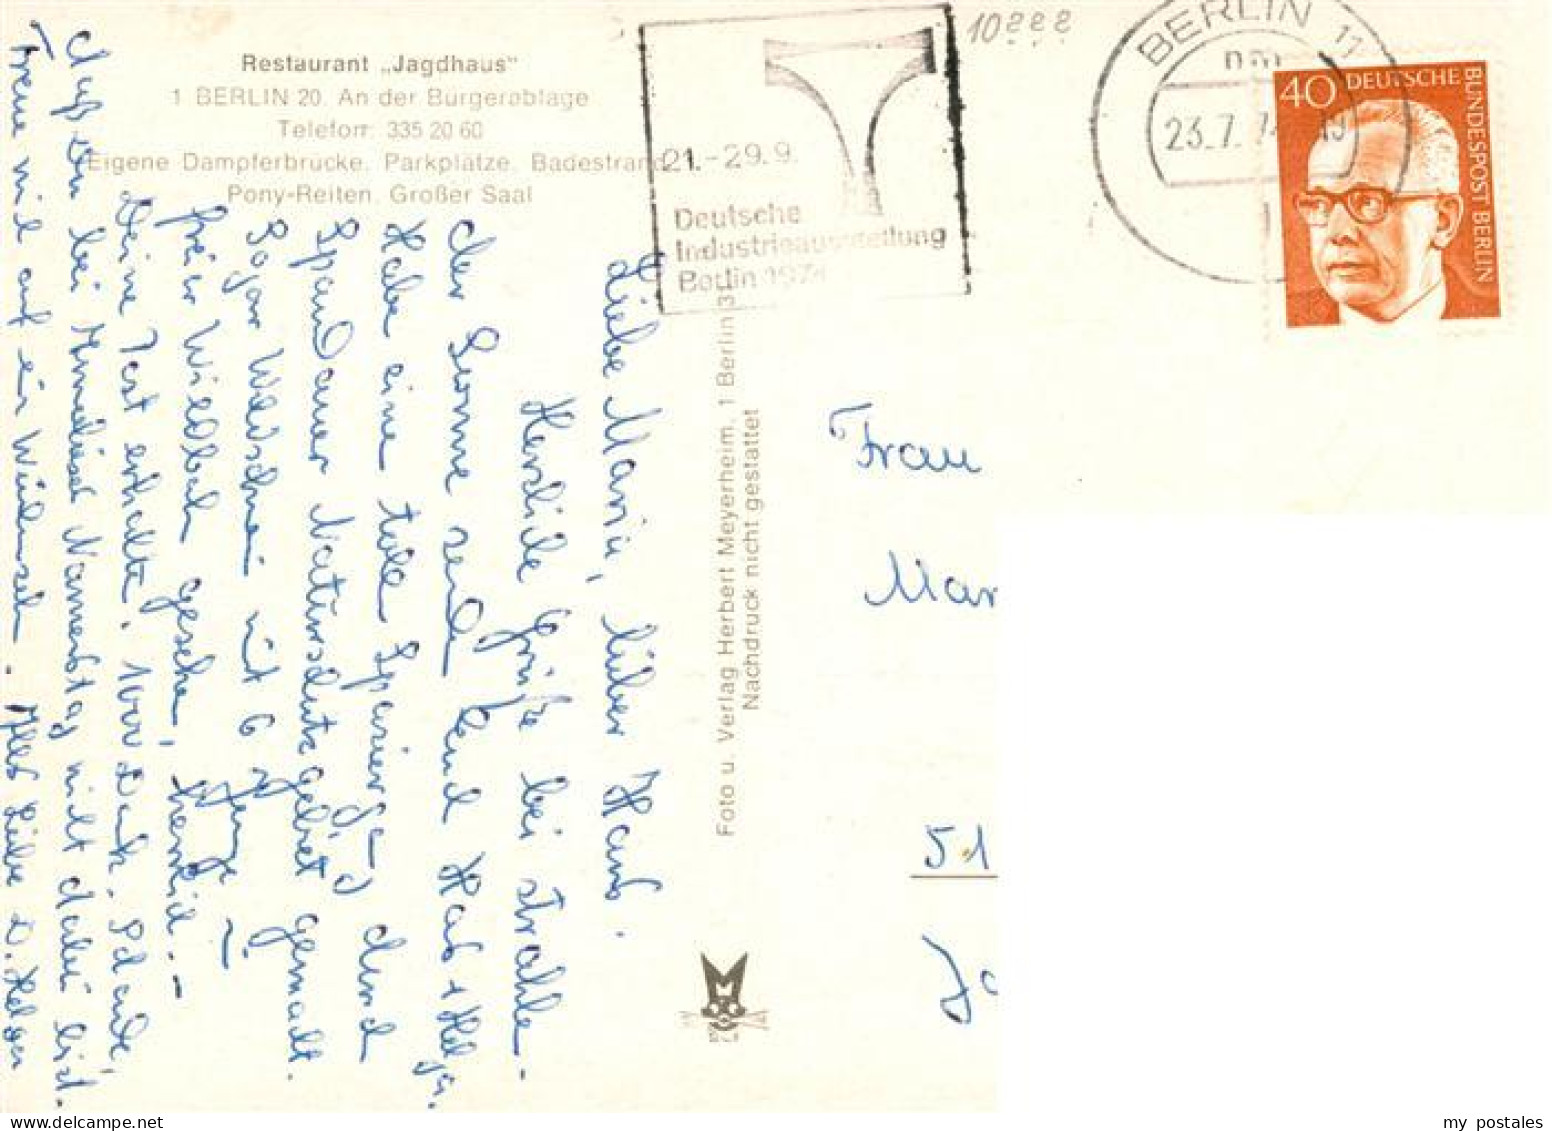 Restaurant „Jagdhaus"
1 BERLIN 20. An der Bürgerablage
Telefon: 335 20 60
Eigene Dampferbrücke, Parkplätze, Badestrand
Pony-Reiten, Großer Saal
21.-29.9.
Deutsche
Industrieausstellung
Berlin 1974
10???
BERLIN 11
23.7.74
40 DEUTSCHE
BUNDESPOST BERLIN
Liebe Maria, lieber Hans.
Herzliche Grüße bei strahlen-
der Sonne senden Hans + Helga.
Habe eine tolle Spaziergang durch
Spandauer Naturschutzgebiet gemacht.
Sogar Wildschwein mit 6 Junge –
freier Wildbahn gesehen, herrlich. –
Deine Post erhalten. 1000 Dank. Schade,
daß Du bei Namenstag nicht dabei bist.
Freue mich auf ein Wiedersehn. Alles Liebe D. Helga
Foto u. Verlag Herbert Meyerheim, 1 Berlin 3
Nachdruck nicht gestattet
Frau
Mar
51
my postales